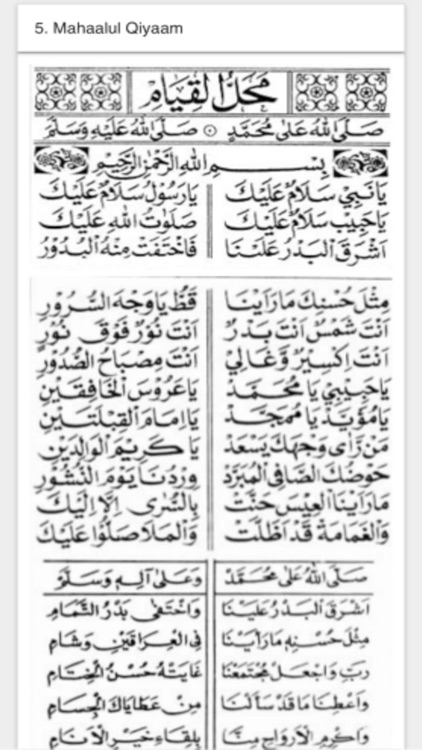 5. Mahaalul Qiyaam
مَحَلُّ الْقِيَامِ
صَلَّى اللهُ عَلٰى مُحَمَّدٍ ۞ صَلَّى اللهُ عَلَيْهِ وَسَلَّمْ
بِسْمِ اللهِ الرَّحْمٰنِ الرَّحِيْمِ
يَا نَبِيْ سَلَامٌ عَلَيْكَ يَا رَسُوْلْ سَلَامٌ عَلَيْكَ
يَا حَبِيْبْ سَلَامٌ عَلَيْكَ صَلَوٰتُ اللهِ عَلَيْكَ
اَشْرَقَ الْبَدْرُ عَلَيْنَا فَاخْتَفَتْ مِنْهُ الْبُدُوْرُ
مِثْلَ حُسْنِكَ مَا رَاَيْنَا قَطُّ يَا وَجْهَ السُّرُوْرِ
اَنْتَ شَمْسٌ اَنْتَ بَدْرٌ اَنْتَ نُوْرٌ فَوْقَ نُوْرٍ
اَنْتَ اِكْسِيْرٌ وَّغَالِيْ اَنْتَ مِصْبَاحُ الصُّدُوْرِ
يَا حَبِيْبِيْ يَا مُحَمَّدْ يَا عَرُوْسَ الْخَافِقَيْنِ
يَا مُؤَيَّدْ يَا مُمَجَّدْ يَا اِمَامَ الْقِبْلَتَيْنِ
مَنْ رَّاٰى وَجْهَكَ يَسْعَدْ يَا كَرِيْمَ الْوَالِدَيْنِ
حَوْضُكَ الصَّافِي الْمُبَرَّدْ وِرْدُنَا يَوْمَ النُّشُوْرِ
مَا رَاَيْنَا الْعِيْسَ حَنَّتْ بِالسُّرٰى اِلَّا اِلَيْكَ
وَالْغَمَامَةْ قَدْ اَظَلَّتْ وَالْمَلَا صَلُّوْا عَلَيْكَ
صَلَّى اللهُ عَلٰى مُحَمَّدْ وَعَلٰى اٰلِهٖ وَسَلَّمْ
اَشْرَقَ الْبَدْرُ عَلَيْنَا وَاخْتَفٰى بَدْرُ التَّمَامِ
مِثْلَ حُسْنِهٖ مَا رَاَيْنَا فِي الْعِرَاقَيْنِ وَشَامِ
رَبِّ وَاجْعَلْ مُجْتَمَعْنَا غَايَتُهُ حُسْنُ الْخِتَامِ
وَاعْطِنَا مَا قَدْ سَاَلْنَا مِنْ عَطَايَاكَ الْجِسَامِ
وَاكْرِمِ الْاَرْوَاحَ مِنَّا بِلِقَاءِ خَيْرِ الْاَنَامِ